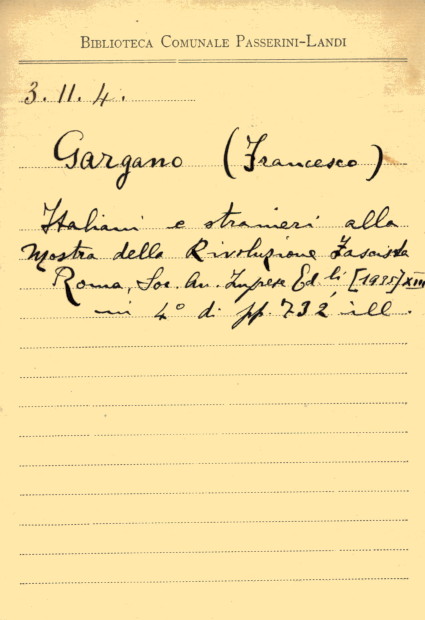 BIBLIOTECA COMUNALE PASSERINI-LANDI
3.11.4.
Gargano (Francesco)
Italiani e stranieri alla
Mostra della Rivoluzione Fascista
Roma, Soc. An. Imprese Ed.li [1935] XIII
in 4° di pp. 732, ill.